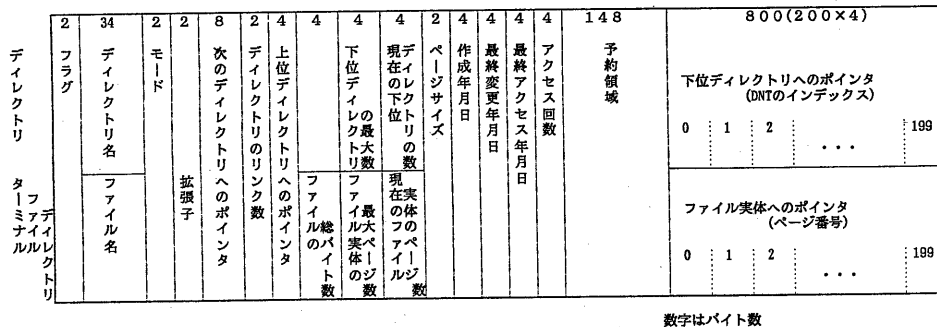 2 34 2 2 8 2 4 4 4 4 2 4 4 4 4 148 800(200×4)
ディレクトリ
フラグ
ディレクトリ名
モード
拡張子
次のディレクトリへのポインタ
ディレクトリのリンク数
上位ディレクトリへのポインタ
下位ディレクトリの最大数
現在の下位ディレクトリの数
ページサイズ
作成年月日
最終変更年月日
最終アクセス年月日
アクセス回数
予約領域
下位ディレクトリへのポインタ
(DNTのインデックス)
0 1 2 ・・・ 199
ターミナル
ファイル
ディレクトリ
ファイル名
ファイルの総バイト数
ファイル実体の最大ページ数
現在のファイル実体のページ数
ファイル実体へのポインタ
(ページ番号)
0 1 2 ・・・ 199
数字はバイト数